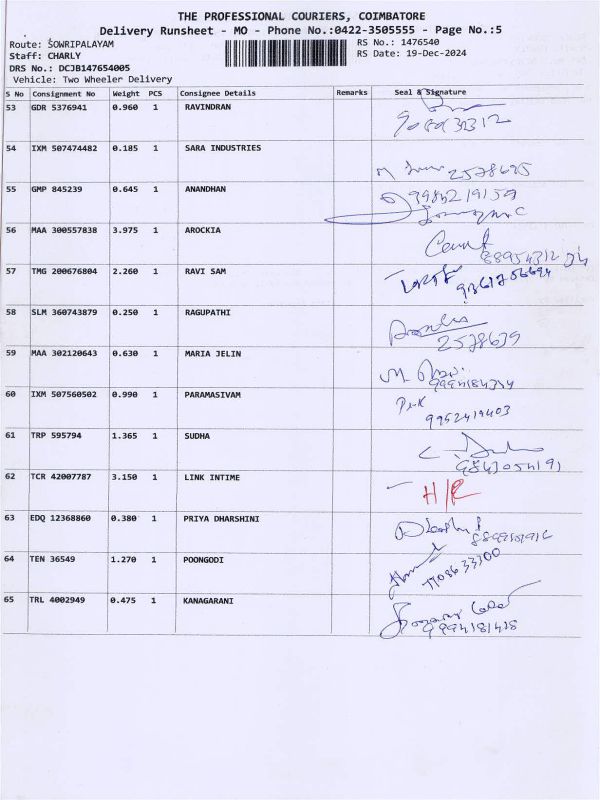 THE PROFESSIONAL COURIERS, COIMBATORE
Delivery Runsheet - MO - Phone No.:0422-3505555 - Page No.:5
Route: SOWRIPALAYAM
RS No.: 1476540
Staff: CHARLY
RS Date: 19-Dec-2024
DRS No.: DCJB147654005
Vehicle: Two Wheeler Delivery
S No Consignment No Weight PCS Consignee Details Remarks Seal & Signature
53 GDR 5376941 0.960 1 RAVINDRAN
54 IXM 507474482 0.185 1 SARA INDUSTRIES
2578695
55 GMP 845239 0.645 1 ANANDHAN
56 MAA 300557838 3.975 1 AROCKIA
57 TMG 200676804 2.260 1 RAVI SAM
58 SLM 360743879 0.250 1 RAGUPATHI
2578639
59 MAA 302120643 0.630 1 MARIA JELIN
60 IXM 507560502 0.990 1 PARAMASIVAM
9952419403
61 TRP 595794 1.365 1 SUDHA
9843054191
62 TCR 42007787 3.150 1 LINK INTIME
H/R
63 EDQ 12368860 0.380 1 PRIYA DHARSHINI
64 TEN 36549 1.270 1 POONGODI
7708633300
65 TRL 4002949 0.475 1 KANAGARANI